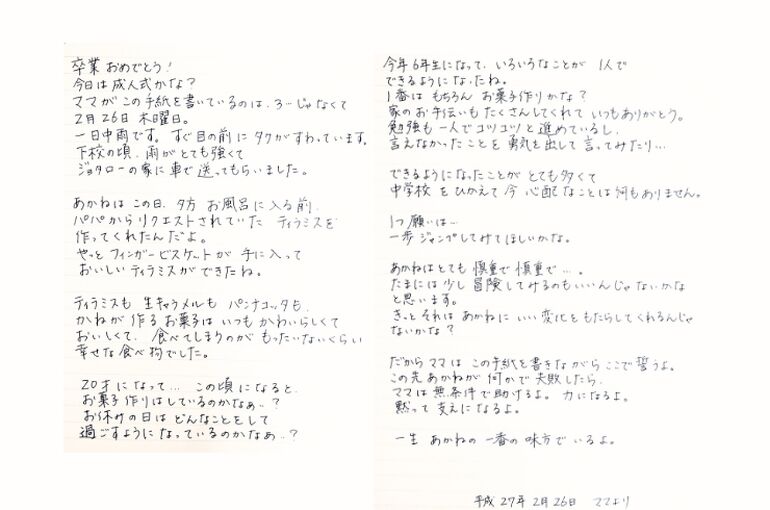 卒業おめでとう!
今日は成人式かな?
ママがこの手紙を書いているのは、3…じゃなくて
2月26日 木曜日。
一日中雨です。すぐ目の前にタクがすわっています。
下校の頃、雨がとても強くて
ジョタローの家に車で送ってもらいました。
あかねはこの日、夕方 お風呂に入る前、
パパからリクエストされていた ティラミスを
作ってくれたんだよ。
やっとフィンガービスケットが手に入って
おいしいティラミスができたね。
ティラミスも 生キャラメルも パンナコッタも、
かねが作るお菓子は いつもかわいらしくて
おいしくて、食べてしまうのがもったいないくらい
幸せな食べ物でした。
20才になって… この頃になると、
お菓子作りはしているのかなぁ…?
お休みの日はどんなことをして
過ごすようになっているのかなぁ…?
今年6年生になって、いろいろなことが 1人で
できるようになったね。
1番は もちろん お菓子作りかな?
家のお手伝いもたくさんしてくれて いつもありがとう。
勉強も一人でコツコツと進めているし、
言えなかったことを 勇気を出して言ってみたり…
できるようになったことが とても多くて
中学校をひかえて今 心配なことは何もありません。
1つ願いは…
一歩ジャンプしてみてほしいかな。
あかねはとても 慎重で慎重で…。
たまには少し冒険してみるのもいいんじゃないかな
と思います。
きっとそれは あかねに いい変化をもたらしてくれるんじゃ
ないかな?
だからママは この手紙を書きながら ここで誓うよ。
この先あかねが何かで失敗したら、
ママは無条件で助けるよ。力になるよ。
黙って支えになるよ。
一生 あかねの 一番の味方でいるよ。
平成27年2月26日 ママより